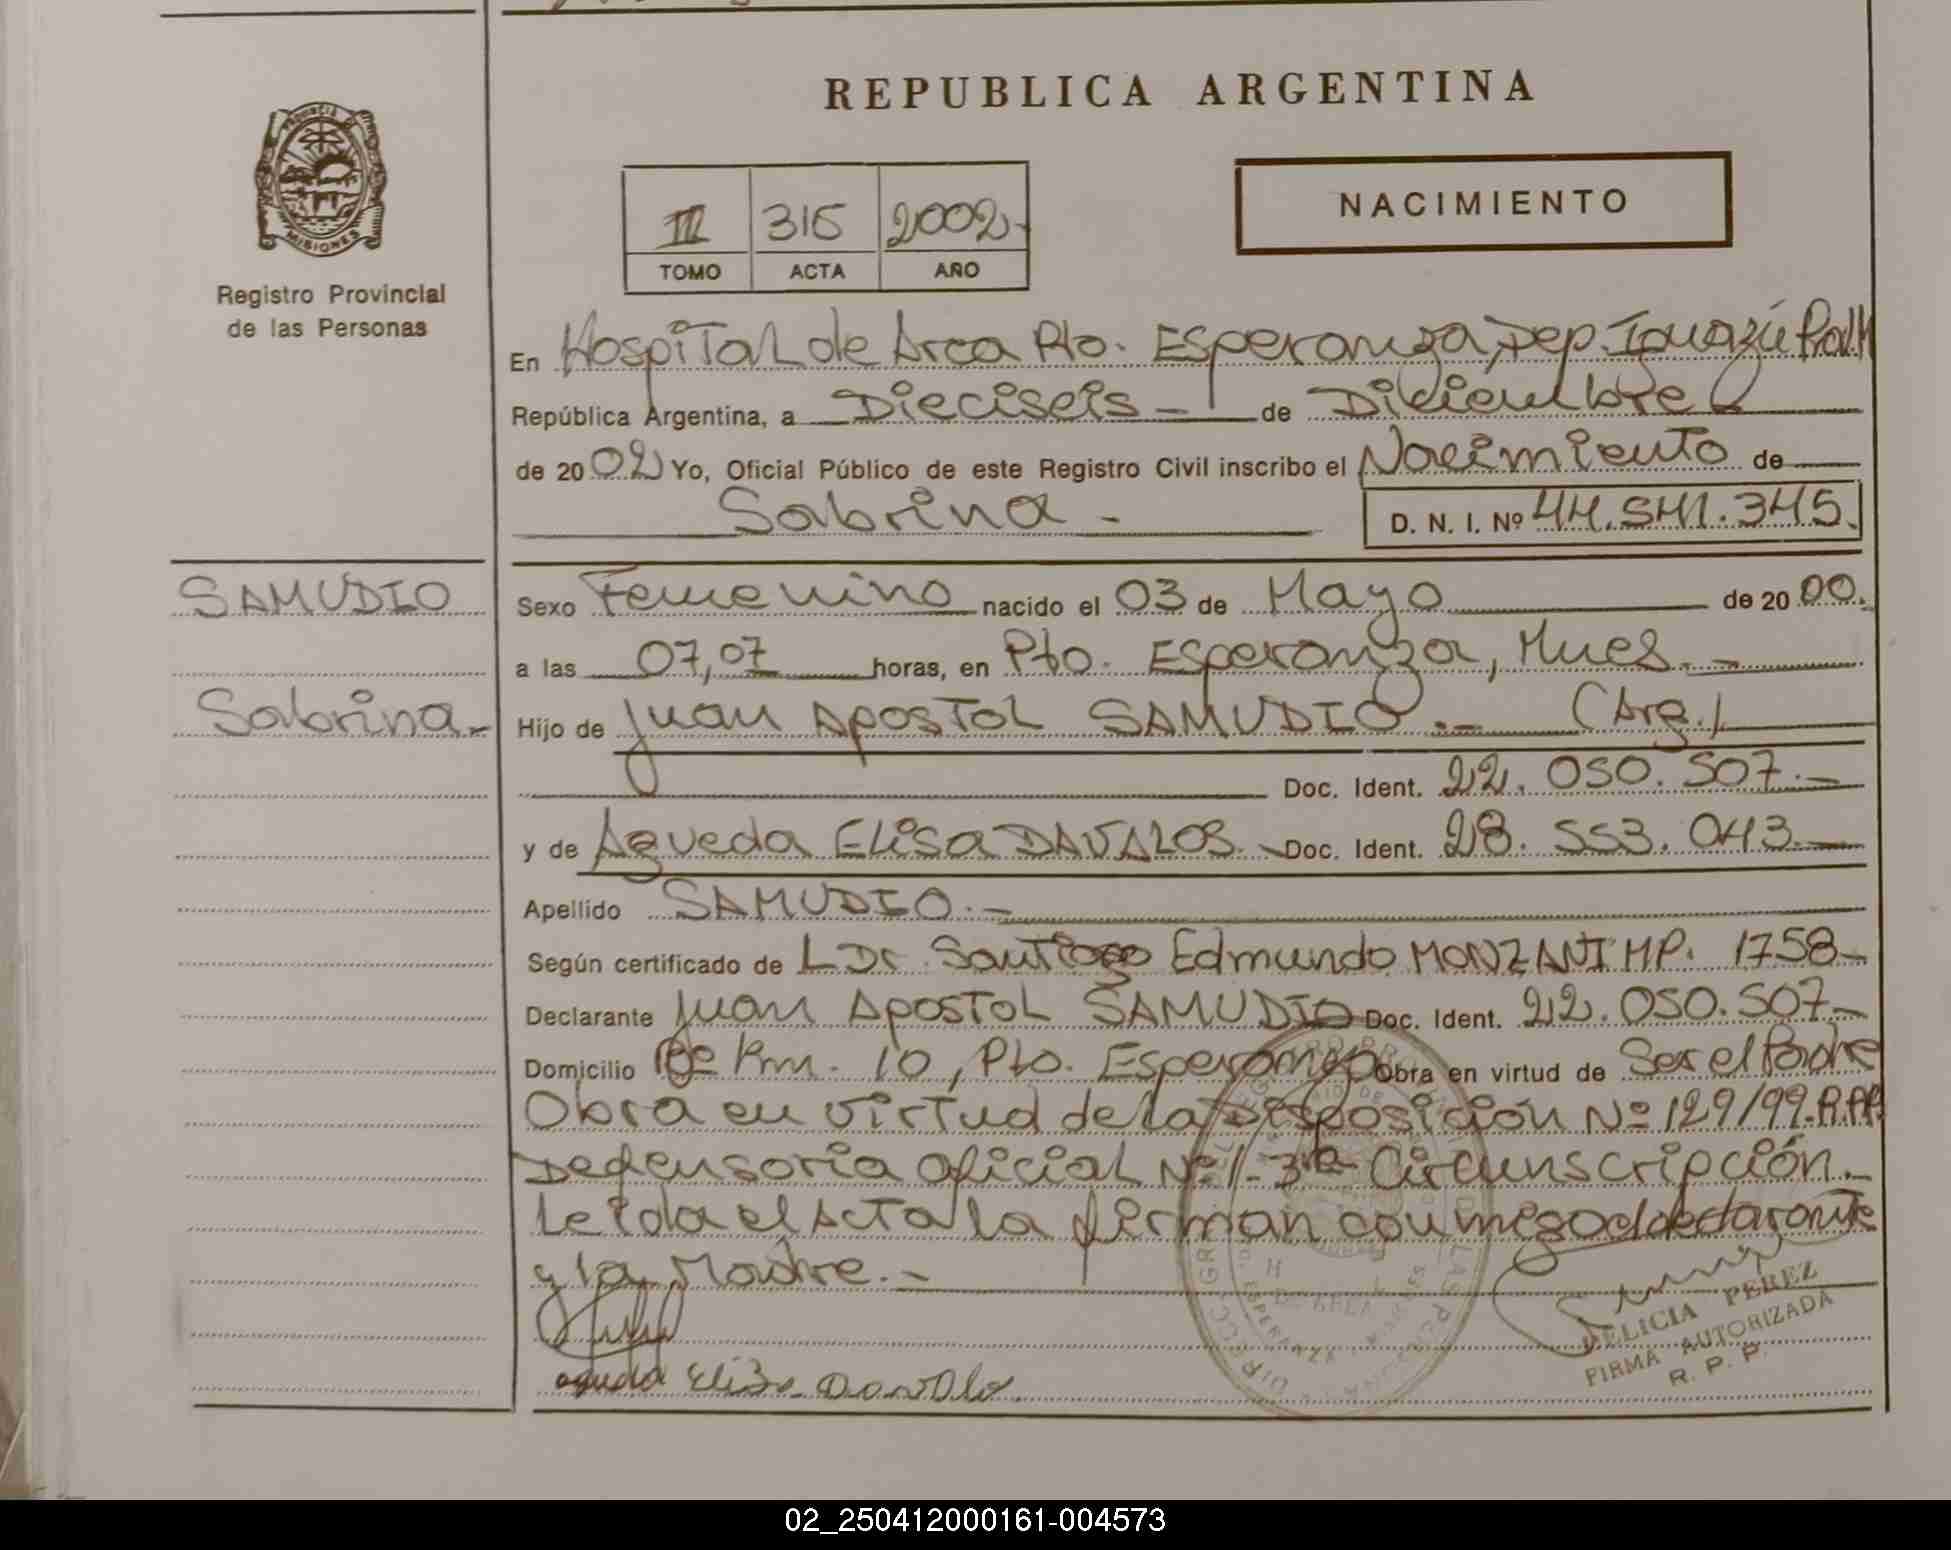 REPUBLICA ARGENTINA
PROVINCIA DE
MISIONES
Registro Provincial
de las Personas
III 315 2002-
TOMO ACTA AÑO
NACIMIENTO
En Hospital de Area Pto. Esperanza, Dep. Iguazú
República Argentina, a Dieciseis - de Diciembre
de 2002 Yo, Oficial Público de este Registro Civil inscribo el Nacimiento de
Sabrina - D. N. I. Nº 44.541.345.
SAMUDIO
Sabrina-
Sexo Femenino nacido el 03 de Mayo de 2000.
a las 07,07 horas, en Pto. Esperanza, Mnes. -
Hijo de Juan Apostol SAMUDIO.- (Arg.)
Doc. Ident. 22.050.507.-
y de Agueda Elisa DAVALOS.- Doc. Ident. 28.553.043.-
Apellido SAMUDIO.-
Según certificado de Dr. Santiago Edmundo MONZANI MP. 1758-
Declarante Juan Apostol SAMUDIO Doc. Ident. 22.050.507-
Domicilio Km. 10, Pto. Esperanza Obra en virtud de Ser el Padre
Obra en virtud de la Disposición Nº 129/99.
Defensoria oficial Nº 1- 3ra Circunscripción.-
Leida el Acta la firman conmigo el declarante
y la Madre.-
Elisa
FELICIA PEREZ
FIRMA AUTORIZADA
R. P. P.
02_250412000161-004573